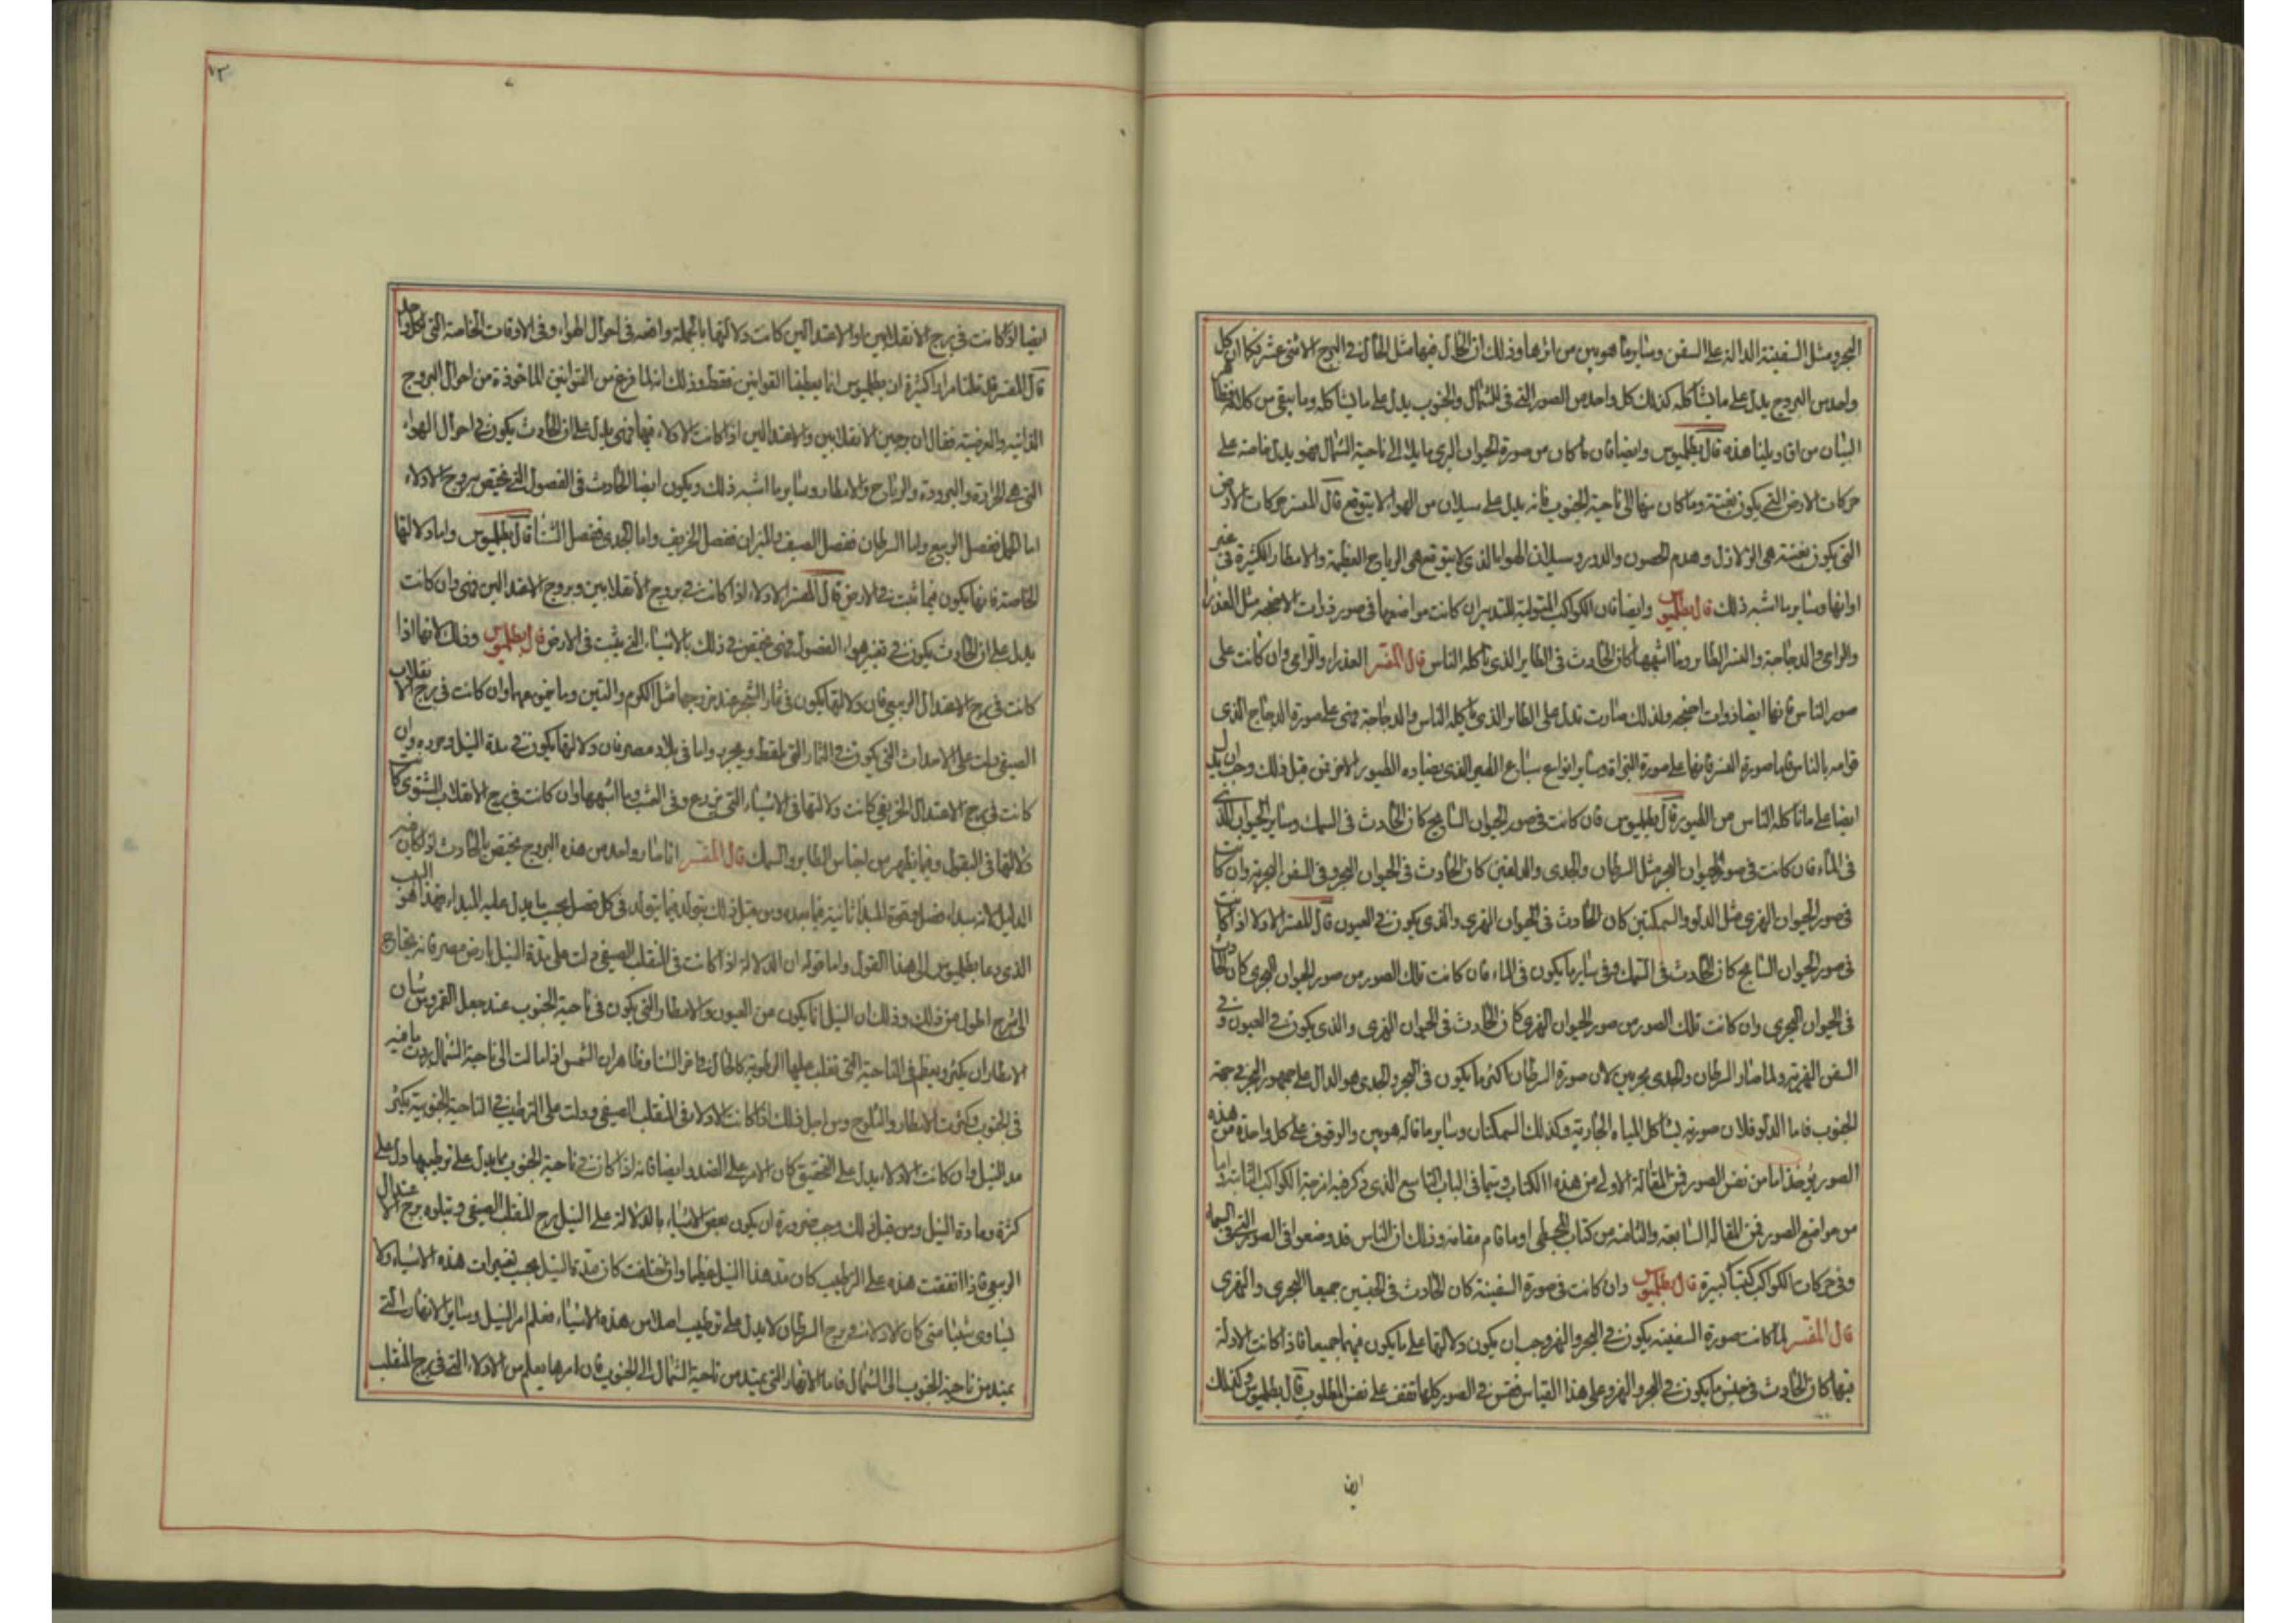 البحر ومثل السفينة الدالة على السفن وساير ما هو بين من امرها وذلك ان الحال فيها مثل الحال في البروج الاثنى عشر فكما ان كل
واحد من البروج يدل على ما يشاكله كذلك كل واحد من الصور التي في الشمال والجنوب يدل على ما يشاكله وما يبقى من كلامه فظاهر
البيان من اقاويلنا هذه قال بطلميوس وايضا فان ما كان من صورة الحيوان البري مايلا الى ناحية الشمال فهو يدل خاصة على
حركات الارض التي يكون بغتة وما كان منها الى ناحية الجنوب فانه يدل على سيلان من الهواء لا يتوقع قال المفسر حركات الارض
التي يكون بغتة هي الزلازل وهدم الحصون والدور وسيلان الهواء الذي لا يتوقع هي الرياح العظيمة والامطار الكثيرة في غير
اوانها وساير ما اشبه ذلك قال بطلميوس وايضا فان الكواكب المتولية للتدبير ان كانت مواضعها في صور ذوات الاجنحة مثل العذراء
والرامي والدجاجة والنسر الطاير وما اشبهها كان الحادث في الطاير الذي ياكله الناس قال المفسر العذراء والرامي وان كانت على
صور الناس فانها ايضا ذوات اجنحة ولذلك صارت تدل على الطاير الذي ياكله الناس والدجاجة فهي على صورة الدجاج الذي
قوامه بالناس فاما صورة النسر فانها على صورة البزاة وساير انواع سباع الطير الذي يصاد به الطيور الاخر فمن قبل ذلك وجب ان يدل
ايضا على ما تاكله الناس من الطيور قال بطلميوس فان كانت في صور الحيوان السابح كان الحادث في السمك وساير الحيوان الذي
في الماء فان كانت في صور الحيوان البحري مثل السرطان والجدي والدلفين كان الحادث في الحيوان البحري وفي السفن البحرية وان كانت
في صور الحيوان النهري مثل الدلو والسمكتين كان الحادث في الحيوان النهري والذي يكون في العيون قال المفسر الادلا اذا كانت
في صور الحيوان السابح كان الحادث في السمك وفي ساير ما يكون في الماء فان كانت تلك الصور من صور الحيوان البحري كان الحادث
في الحيوان البحري وان كانت تلك الصور من صور الحيوان النهري كان الحادث في الحيوان النهري والذي يكون في العيون وفي
السفن النهرية ولما صار السرطان والجدي بحريين لان صورة السرطان اكثر ما يكون في البحر والجدي هو الدال على جمهور البحر في جهة
الجنوب فاما الدلو فلان صورته يشاكل المياه الجارية وكذلك السمكتان وساير ما قاله هو بين والوقوف على كل واحدة من هذه
الصور يؤخذ اما من نفس الصور فمن المقالة الاولى من هذا الكتاب وسيما في الباب التاسع الذي ذكر فيه امزجة الكواكب الثابتة واما
من مواضع الصور فمن المقالة السابعة والثامنة من كتاب المجسطي او ما قام مقامه وذلك ان الناس قد وضعوا في الصور التي في السماء
وفي حركات الكواكب كتبا كبيرة قال بطلميوس وان كانت في صورة السفينة كان الحادث في الجنسين جميعا البحري والنهري
قال المفسر لما كانت صورة السفينة يكون في البحر والنهر وجب ان يكون دلالتها على ما يكون فيهما جميعا فاذا كانت الادلة
فيها كان الحادث في جنس ما يكون في البحر والنهر وعلى هذا القياس فقس في الصور كلها تقف على نفس المطلوب قال بطلميوس وكذلك
ايضا
٧٣
ايضا اذا كانت في برج الانقلابين او الاعتدالين كانت دلالتها بالجملة واقعة في احوال الهواء وفي الاوقات الخاصة التي لكل واحد
قال المفسر قد قلنا مرارا كثيرة ان بطلميوس انما يعطينا القوانين فقط وذلك انه لما فرغ من القوانين الماخوذة من احوال البروج
الذاتية والعرضية فقال ان برجين الانقلابين والاعتدالين اذا كانت الادلاء فيها فهي يدل على ان الحادث يكون في احوال الهواء
التي هي الحرارة والبرودة والرياح والامطار وساير ما اشبه ذلك ويكون ايضا الحادث في الفصول التي يختص ببروج الادلاء
اما الحمل ففصل الربيع واما السرطان ففصل الصيف والميزان ففصل الخريف واما الجدي ففصل الشتا قال بطلميوس واما دلالتها
الخاصة فانها يكون فيما ينبت في الارض قال المفسر الادلاء اذا كانت في بروج الانقلابين وبروج الاعتدالين فهي وان كانت
يدل على ان الحادث يكون في تغير هواء الفصول فهي يختص في ذلك بالاشياء التي ينبت في الارض قال بطلميوس وذلك لانها اذا
كانت في برج الاعتدال الربيعي فان دلالتها يكون في ثمار الشجر عند خروجها مثل الكرم والتين وما ينمو معهما وان كانت في برج الانقلاب
الصيفي دلت على الاحداث التي يكون في الثمار التي يلقط ويخزن واما في بلاد مصر فان دلالتها يكون في مدة النيل وجزره وان
كانت في برج الاعتدال الخريفي كانت دلالتها في الاشياء التي تزرع وفي العشب وما اشبهها وان كانت في برج الانقلاب الشتوي كانت
دلالتها في البقول وفيما يظهر من اجناس الطاير والسمك قال المفسر انما صار واحد من هذه البروج يختص بالحادث اذا كان فيه
الدليل لانه مبداء فصل وقوة المبدا ثابتة فيما بعده ومن قبل ذلك يتولد فيما يتولد في كل فصل بحسب ما يدل عليه المبداء فهذا هو السبب
الذي دعا بطلميوس الى هذا القول واما قوله ان الدلالة اذا كانت في المنقلب الصيفي دلت على مدة النيل بارض مصر فانه يحتاج
الى شرح اطول من ذلك وذلك ان النيل انما يكون من العيون والامطار التي يكون في ناحية الجنوب عند جبل القمر وشان
الامطار ان يكثر ويعظم في الناحية التي تغلب عليها الرطوبة كالحال في اخر الشتا وظاهر ان الشمس اذا مالت الى ناحية الشمال بردت نافيه
في الجنوب وكثرت الامطار والثلوج ومن اجل ذلك اذا كانت الادلاء في المنقلب الصيفي ودلت على الترطيب في الناحية الجنوبية يكثر
مد النيل وان كانت الادلاء يدل على التجفيف كان الامر على الضد وايضا فانه اذا كان في ناحية الجنوب ما يدل على ترطيبها دل على
كثرة ومادة النيل ومن قبل ذلك وجب ضرورة ان يكون بعض الاشياء بالدلالة على النيل برج المنقلب الصيفي ويتلوه برج الاعتدال
الربيعي فاذا اتفقت هذه على الترطيب كان مد هذا النيل عظيما وان اختلفت كان مدة النيل بحسب تغييرات هذه الاشياء ولا
يساوى شيئا متى كان الادلاء في برج السرطان لا يدل على ترطيب اصلا من هذه الاشياء فعلم امر النيل وساير الانهار التي
يمتد من ناحية الجنوب الى الشمال فاما الانهار التي يمتد من ناحية الشمال الى الجنوب فان امرها يعلم من الادلاء التي في برج المنقلب